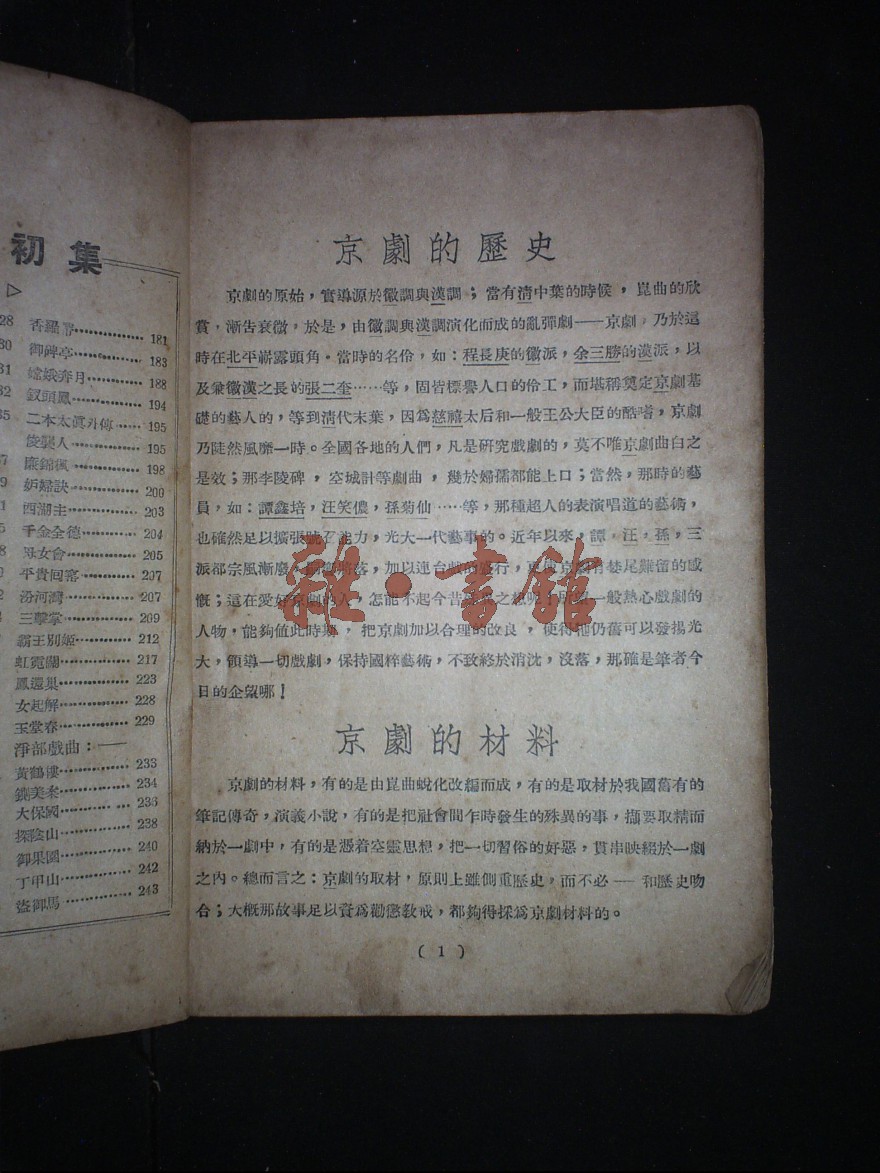 初集
28 香羅帶 181
30 御碑亭 183
31 嫦娥奔月 188
32 釵頭鳳 194
35 二本太眞外傳 195
俊襲人 195
37 廉錦楓 198
39 妒婦訣 200
西湖主 203
千金全德 204
海女會 205
平貴回窰 207
汾河灣 207
三擊掌 209
霸王別姬 212
虹霓關 217
鳳還巢 223
女起解 228
玉堂春 229
淨部戲曲：——
黃鶴樓 233
鍘美案 234
大保國 236
探陰山 238
御果園 240
丁甲山 242
盜御馬 243
京劇的歷史
京劇的原始，實導源於徽調與漢調；當有淸中葉的時候，崑曲的欣
賞，漸吿衰微，於是，由徽調與漢調演化而成的亂彈劇——京劇，乃於這
時在北平嶄露頭角。當時的名伶，如：程長庚的徽派，余三勝的漢派，以
及兼徽漢之長的張二奎……等，固皆標譽人口的伶工，而堪稱奠定京劇基
礎的藝人的，等到淸代末葉，因爲慈禧太后和一般王公大臣的酷嗜，京劇
乃陡然風靡一時。全國各地的人們，凡是研究戲劇的，莫不唯京劇曲白之
是效；那李陵碑，空城計等劇曲，幾於婦孺都能上口；當然，那時的藝
員，如：譚鑫培，汪笑儂，孫菊仙……等，那種超人的表演唱道的藝術，
也確然足以擴張號召能力，光大一代藝事的。近年以來，譚，汪，孫，三
派都宗風漸廢，落，加以連台戲的盛行，京劇有巷尾難留的感
慨；這在愛好京劇的人，怎能不起今昔之一般熱心戲劇的
人物，能夠值此時期，把京劇加以合理的改良，使得他仍舊可以發揚光
大，領導一切戲劇，保持國粹藝術，不致終於消沈，沒落，那確是筆者今
日的企望哪！
京劇的材料
京劇的材料，有的是由崑曲蛻化改編而成，有的是取材於我國舊有的
筆記傳奇，演義小說，有的是把社會間乍時發生的殊異的事，擷要取精而
納於一劇中，有的是憑着空靈思想，把一切習俗的好惡，貫串映綴於一劇
之內。總而言之：京劇的取材，原則上雖側重歷史，而不必——和歷史吻
合；大概那故事足以資爲勸懲敎戒，都夠得採爲京劇材料的。
( 1 )
雜·書館